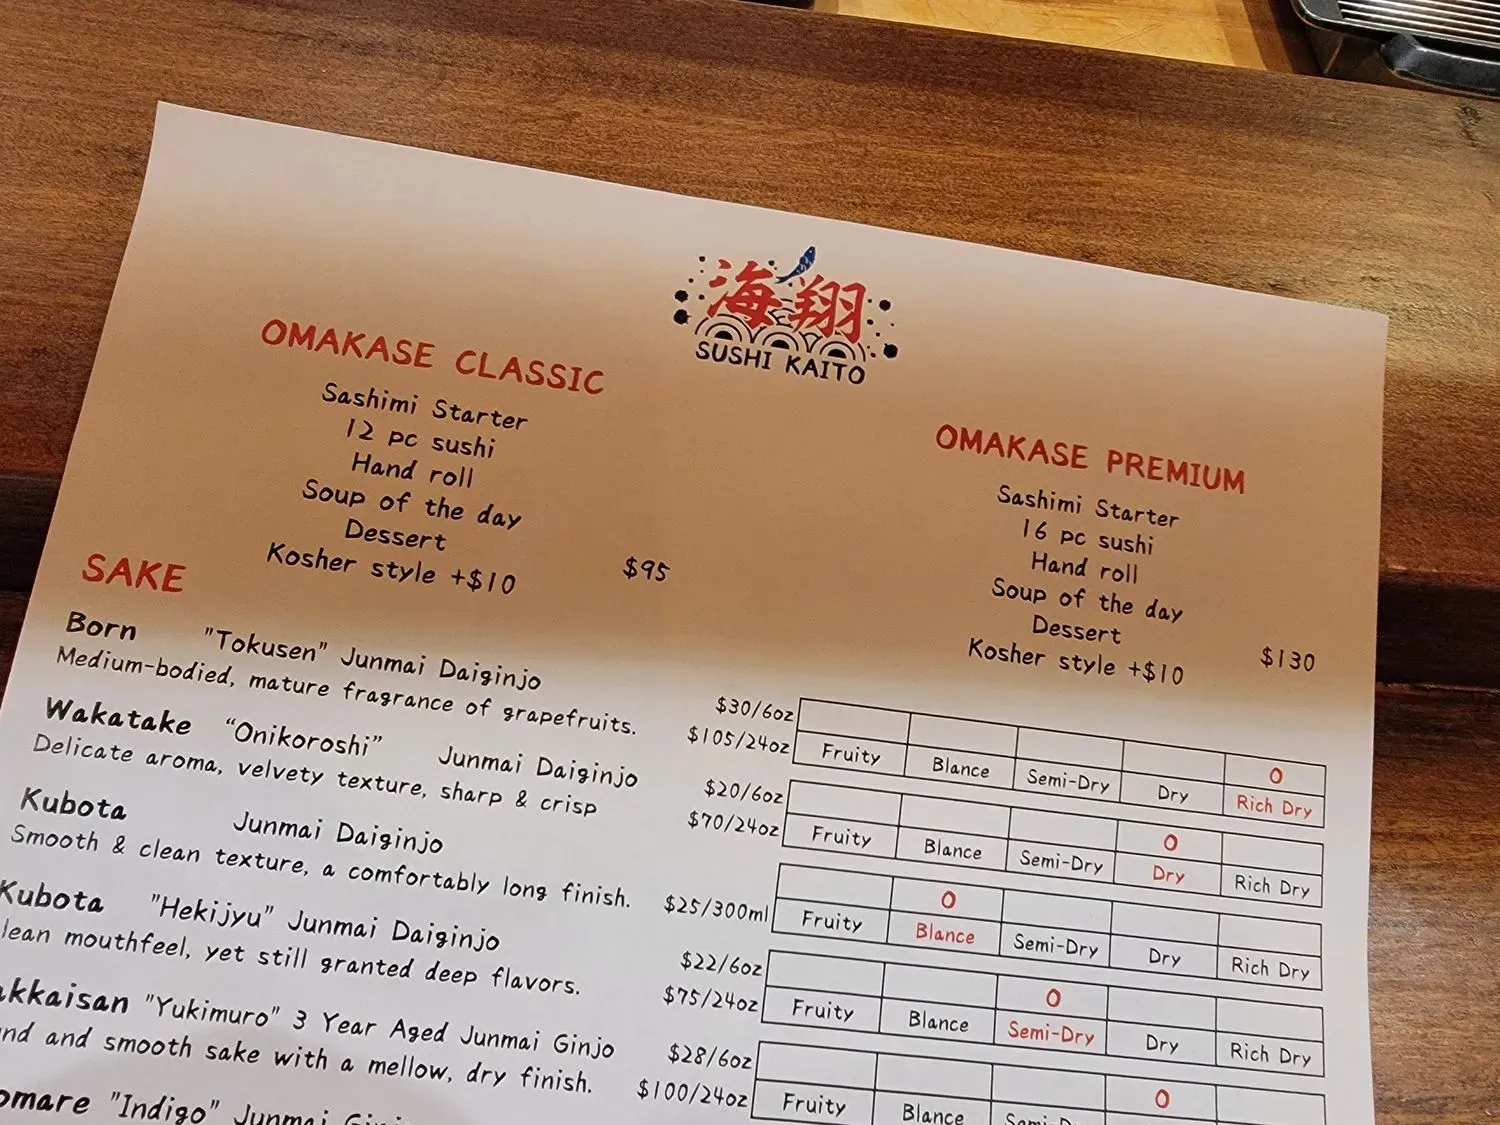 海翔
SUSHI KAITO
OMAKASE CLASSIC
Sashimi Starter
12 pc sushi
Hand roll
Soup of the day
Dessert
Kosher style +$10
$95
OMAKASE PREMIUM
Sashimi Starter
16 pc sushi
Hand roll
Soup of the day
Dessert
Kosher style +$10
$130
SAKE
Born "Tokusen" Junmai Daiginjo
Medium-bodied, mature fragrance of grapefruits.
$30/6oz
$105/24oz
O
Fruity Blance Semi-Dry Dry Rich Dry
Wakatake “Onikoroshi” Junmai Daiginjo
Delicate aroma, velvety texture, sharp & crisp
$20/6oz
$70/24oz
O
Fruity Blance Semi-Dry Dry Rich Dry
Kubota Junmai Daiginjo
Smooth & clean texture, a comfortably long finish.
$25/300ml
O
Fruity Blance Semi-Dry Dry Rich Dry
Kubota "Hekijyu" Junmai Daiginjo
lean mouthfeel, yet still granted deep flavors.
$22/6oz
$75/24oz
O
Fruity Blance Semi-Dry Dry Rich Dry
akkaisan "Yukimuro" 3 Year Aged Junmai Ginjo
and smooth sake with a mellow, dry finish.
$28/6oz
$100/24oz
O
Fruity Blance
omare "Indigo" Junmai